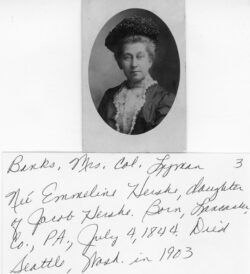 Banks, Mrs. Col. Lyman 3
Neé Emmeline Hershe, daughter
of Jacob Hershe. Born, Lancaster
Co., PA., July 4, 1844. Died
Seattle, Wash. in 1903